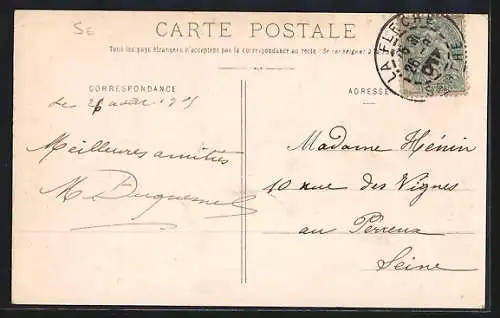 SE
CARTE POSTALE
Tous les pays étrangers n'acceptent pas la correspondance au recto (Se renseigner à la
LA FLECHE
SARTHE
CORRESPONDANCE
ADRESSE
Le 26 août
Meilleures amitiés
M Duquesnel
Madame Hénin
10 rue des Vignes
au Perreux
Seine